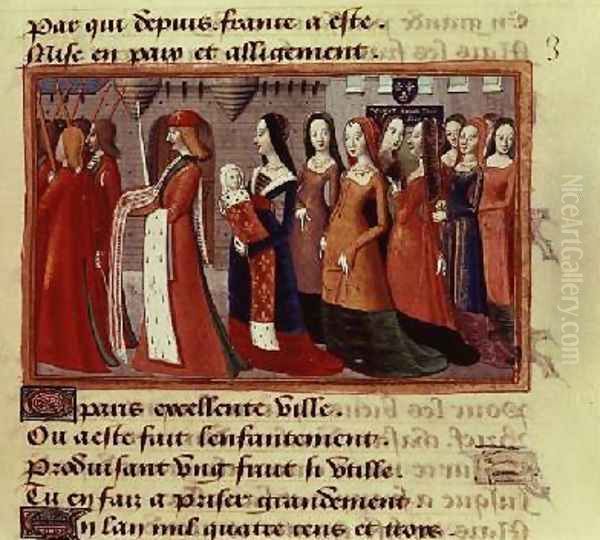 Par qui depuis france a este.
Mise en paix et alligement.
3
O paris excellente ville.
Ou a este fait lenfantement.
Produisant vng fruit si vtille
Tu en fair a priser grandement
En lan mil quatre cens et troys.
NiceArtGallery.com